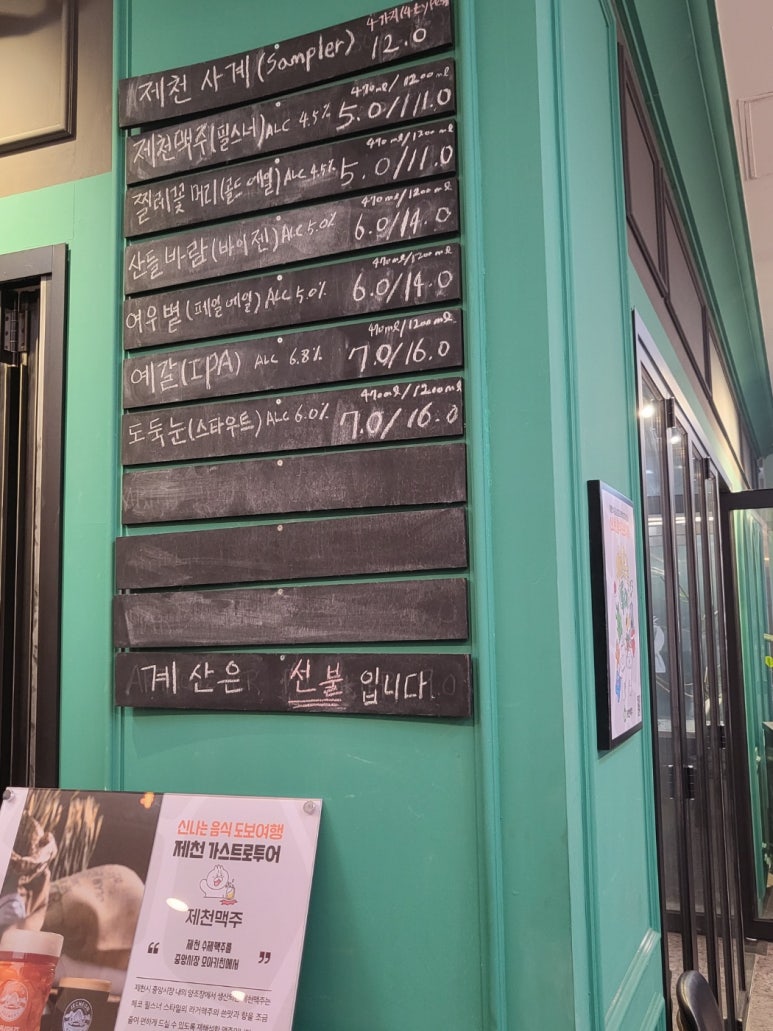 제천 사계(Sampler) 12.0
470㎖/1200㎖
제천맥주(필스너)ALC 4.5% 5.0/11.0
470㎖/1200㎖
찔레꽃 머리(골드 에일)ALC 4.5% 5.0/11.0
470㎖/1200㎖
산들 바람(바이젠)ALC 5.0% 6.0/14.0
470㎖/1200㎖
여우별(페일에일)ALC 5.0% 6.0/14.0
470㎖/1200㎖
예갈(IPA) ALC 6.8% 7.0/16.0
470㎖/1200㎖
도둑눈(스타우트)ALC 6.0% 7.0/16.0
계산은 선불입니다
신나는 음식 도보여행
제천 가스트로투어
제천맥주
“ 제천 수제맥주를 ”
중앙시장 모아키친에서
제천시 중앙시장 내의 양조장에서
체코 필스너 스타일의 라거맥주의 쓴맛과 향을 조금